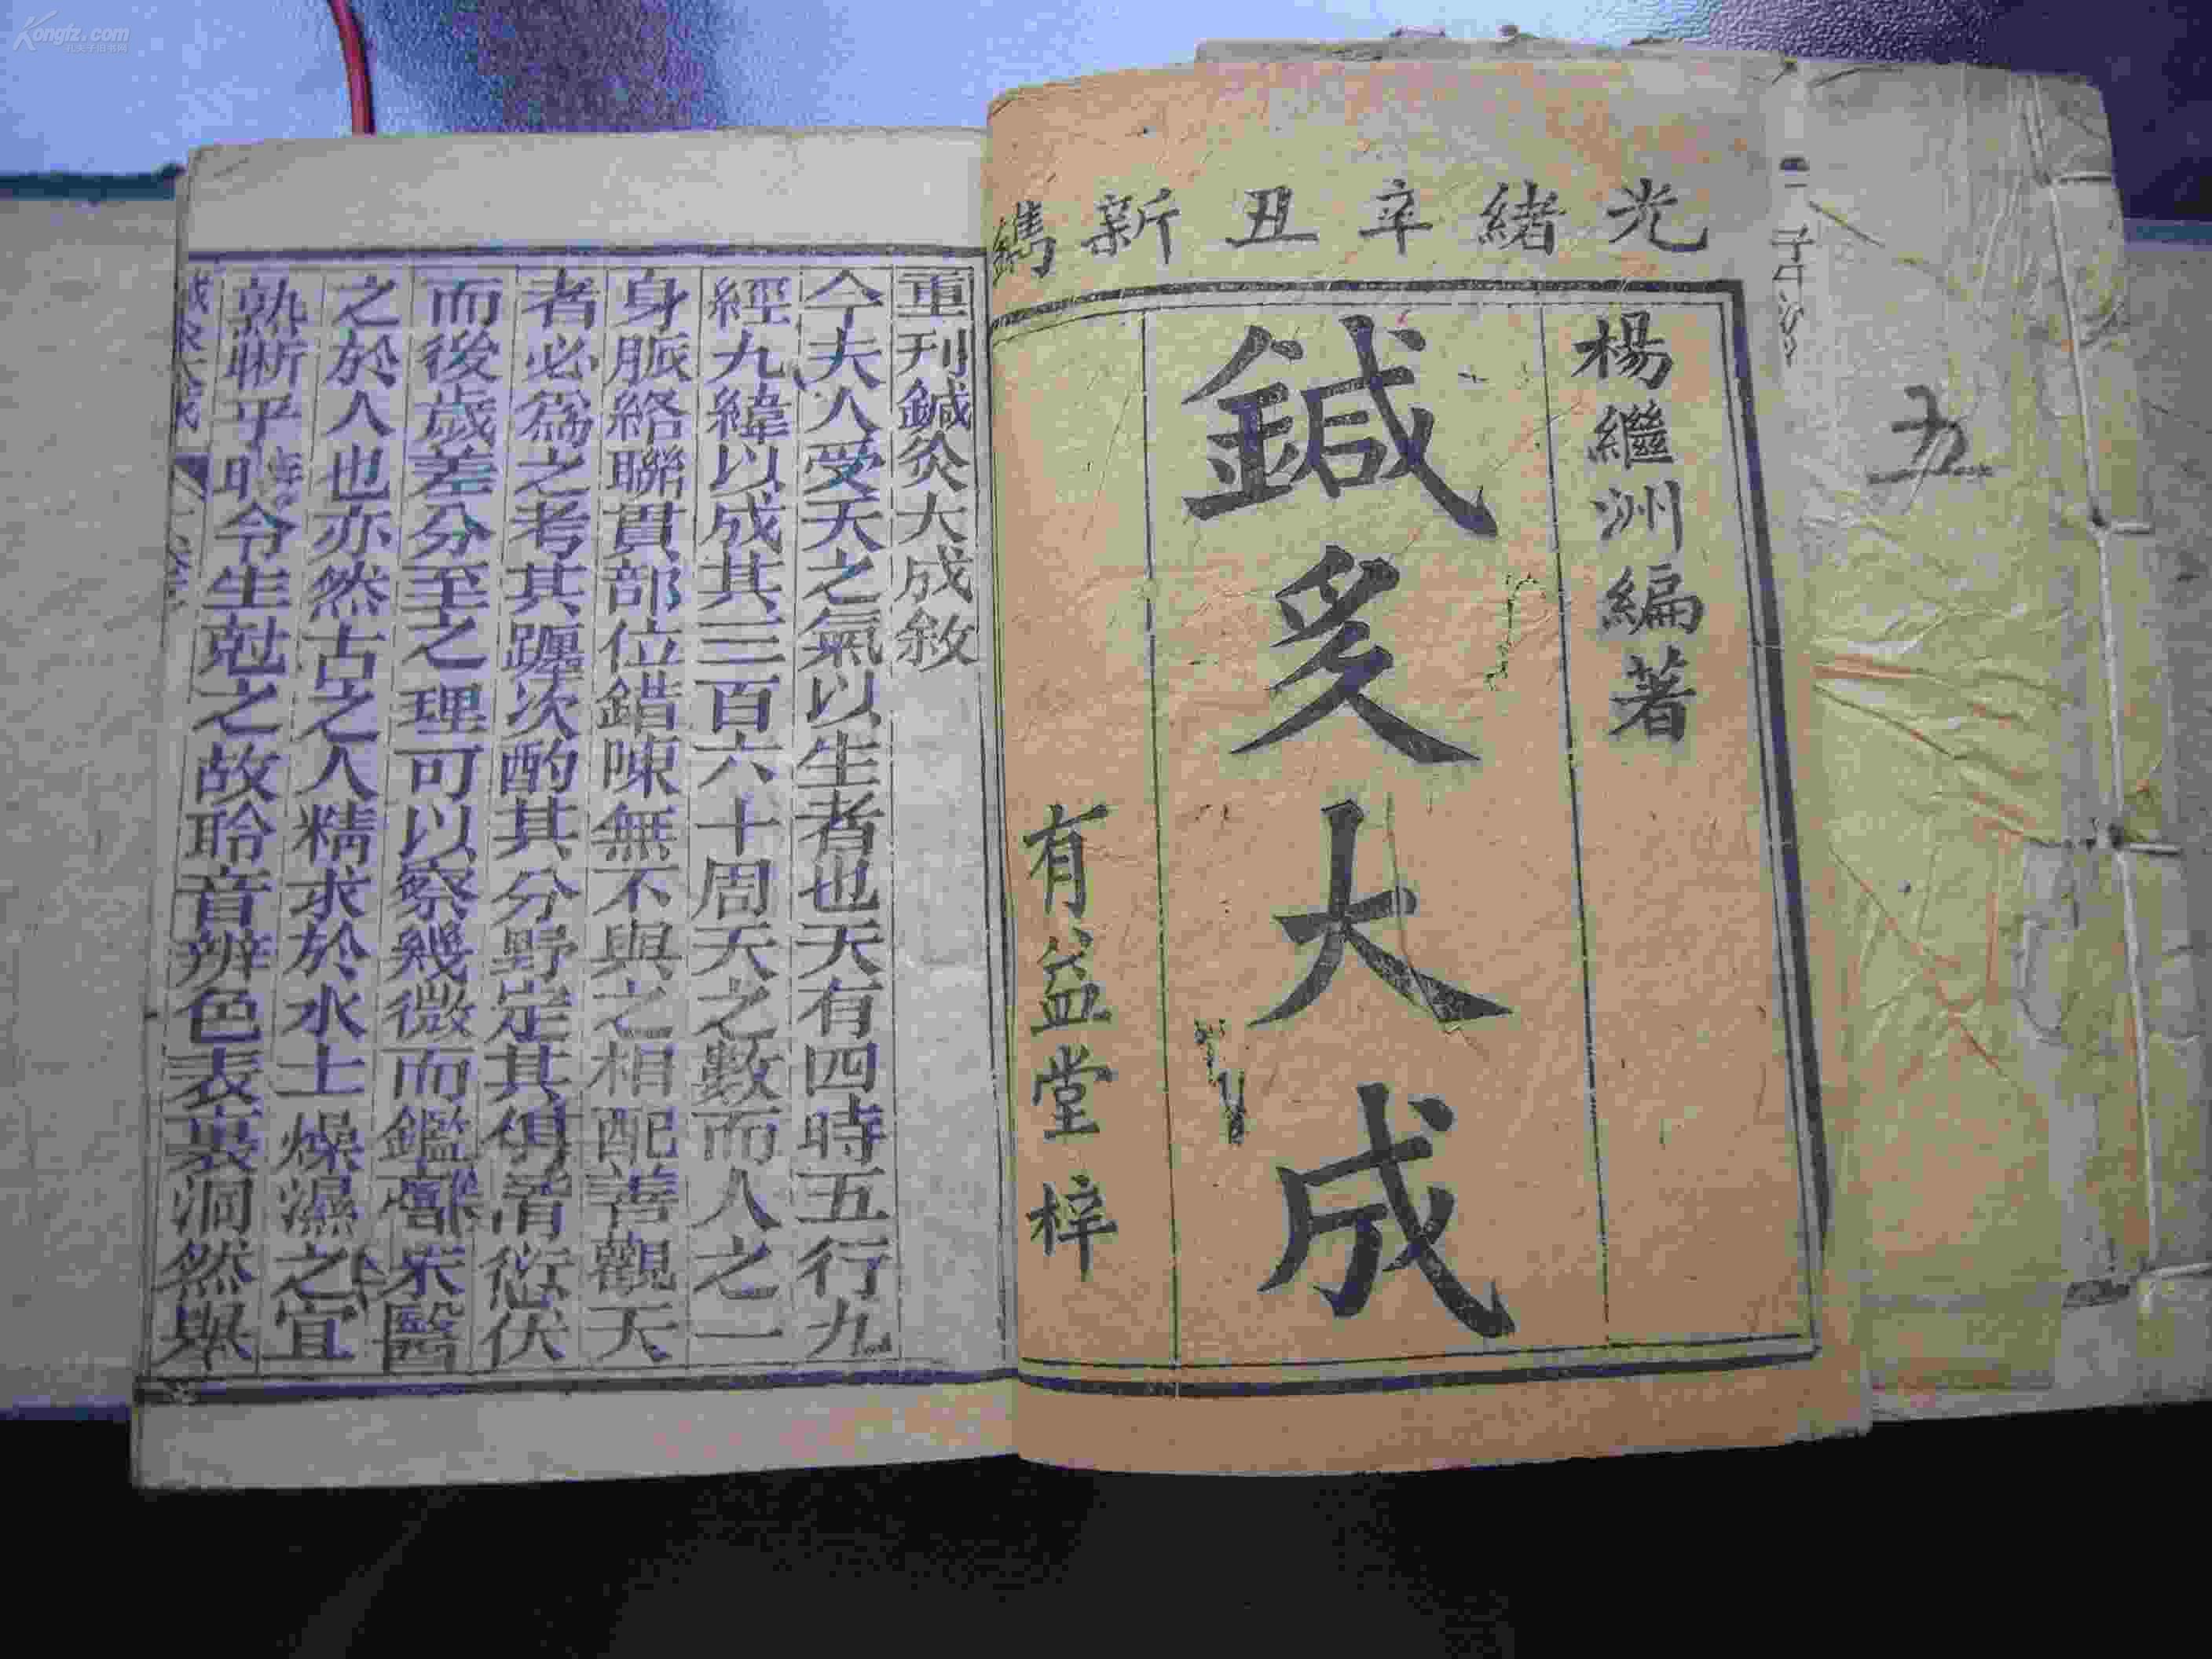 Kongfz.com
孔夫子旧书网
五
光緒辛丑新鐫
楊繼洲編著
鍼灸大成
有益堂梓
重刊鍼灸大成敘
今夫人受天之氣以生者也天有四時五行九
經九緯以成其三百六十周天之數而人之一
身脈絡聯貫部位錯陳無不與之相配善觀天
者必為之考其躔次酌其分野定其俱淯愆伏
而後歲差分至之理可以察幾微而鑑
之於人也亦然古之人精求於水土燥濕之宜
熟晰乎時令生尅之故聆音辨色表裏洞然與